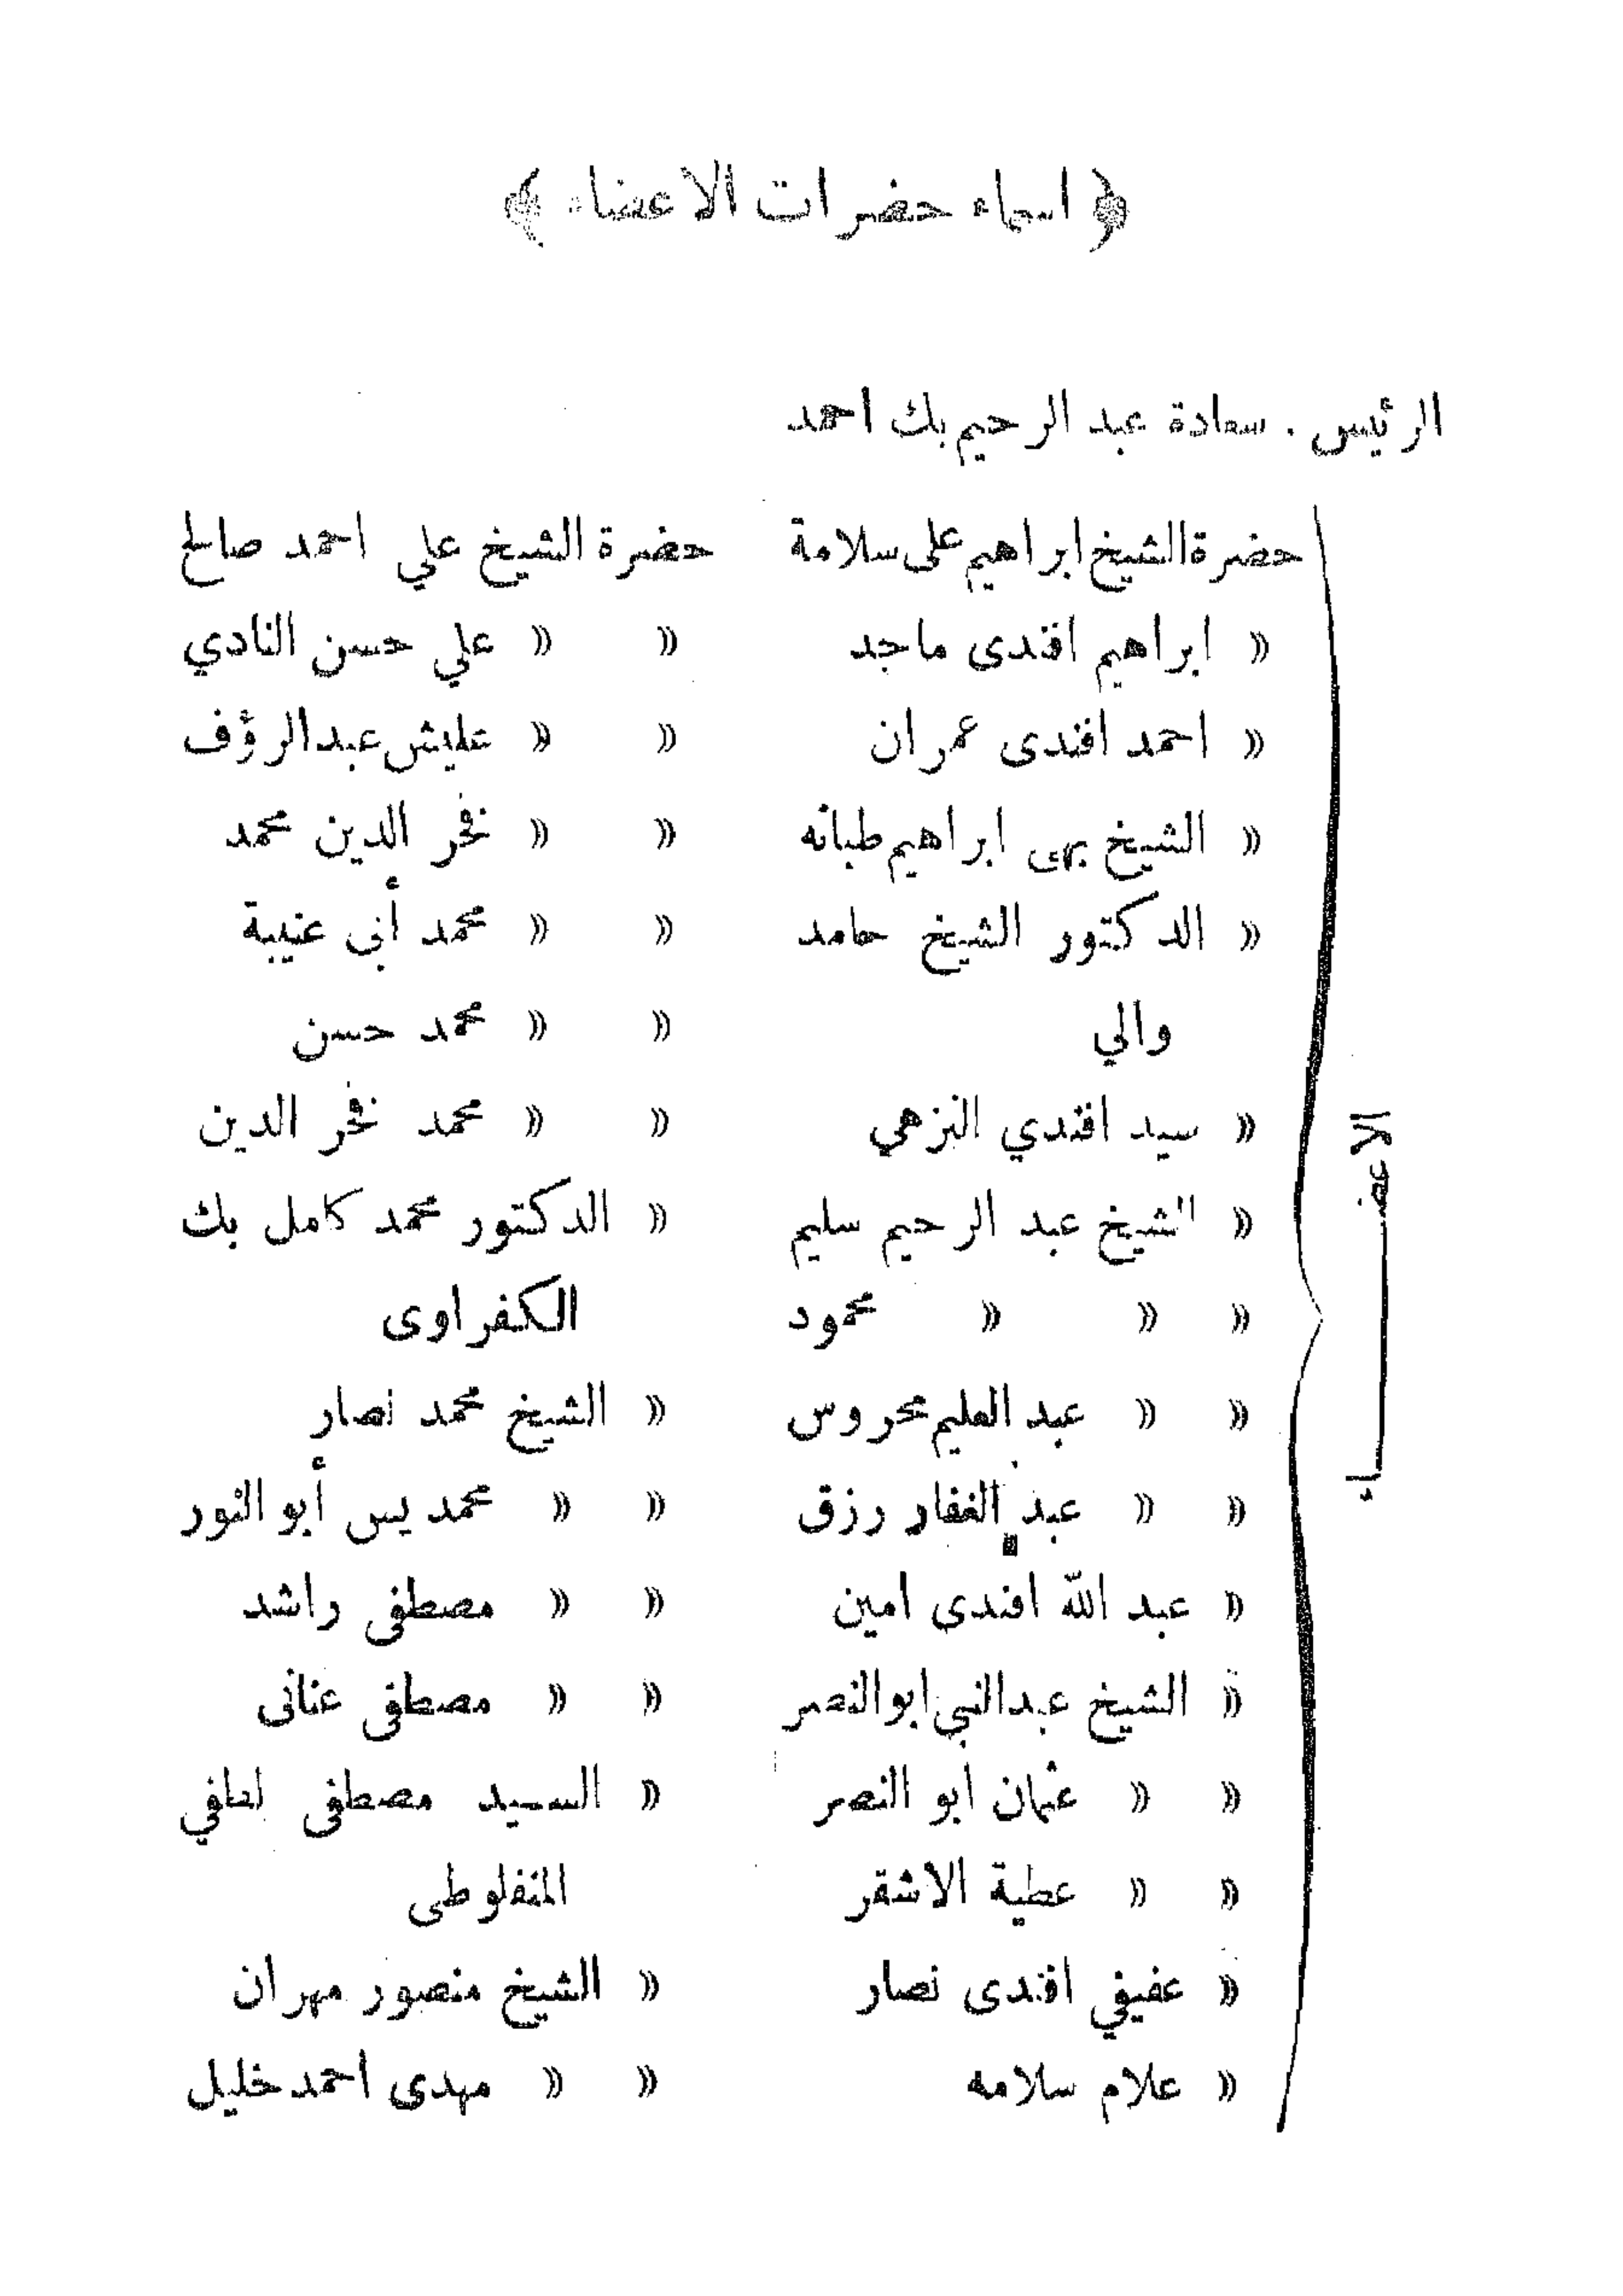 ﴿ اسماء حضرات الاعضاء ﴾
الرئيس . سعادة عبد الرحيم بك احمد
الاعضـــاء
حضرة الشيخ ابراهيم على سلامة
« ابراهيم افندى ماجد
« احمد افندى عمران
« الشيخ بهى ابراهيم طبانه
« الدكتور الشيخ حامد
والي
« سيد افندي النزهي
« الشيخ عبد الرحيم سليم
« « « محمود
« « عبد العليم محروس
« « عبد الغفار رزق
« عبد الله افندى امين
« الشيخ عبد النبي ابو النصر
« « عثمان ابو النصر
« « عطية الاشقر
« عفيفي افندى نصار
« علام سلامه
حضرة الشيخ علي احمد صالح
« « علي حسن النادي
« « عليش عبد الرؤف
« « فخر الدين محمد
« « محمد أبي عنيبة
« « محمد حسن
« « محمد فخر الدين
« الدكتور محمد كامل بك
الكفراوى
« الشيخ محمد نصار
« « محمد يس أبو النور
« « مصطفى راشد
« « مصطفى عنانى
« السيد مصطفى لطفي
المنفلوطى
« الشيخ منصور مهران
« « مهدى احمد خليل